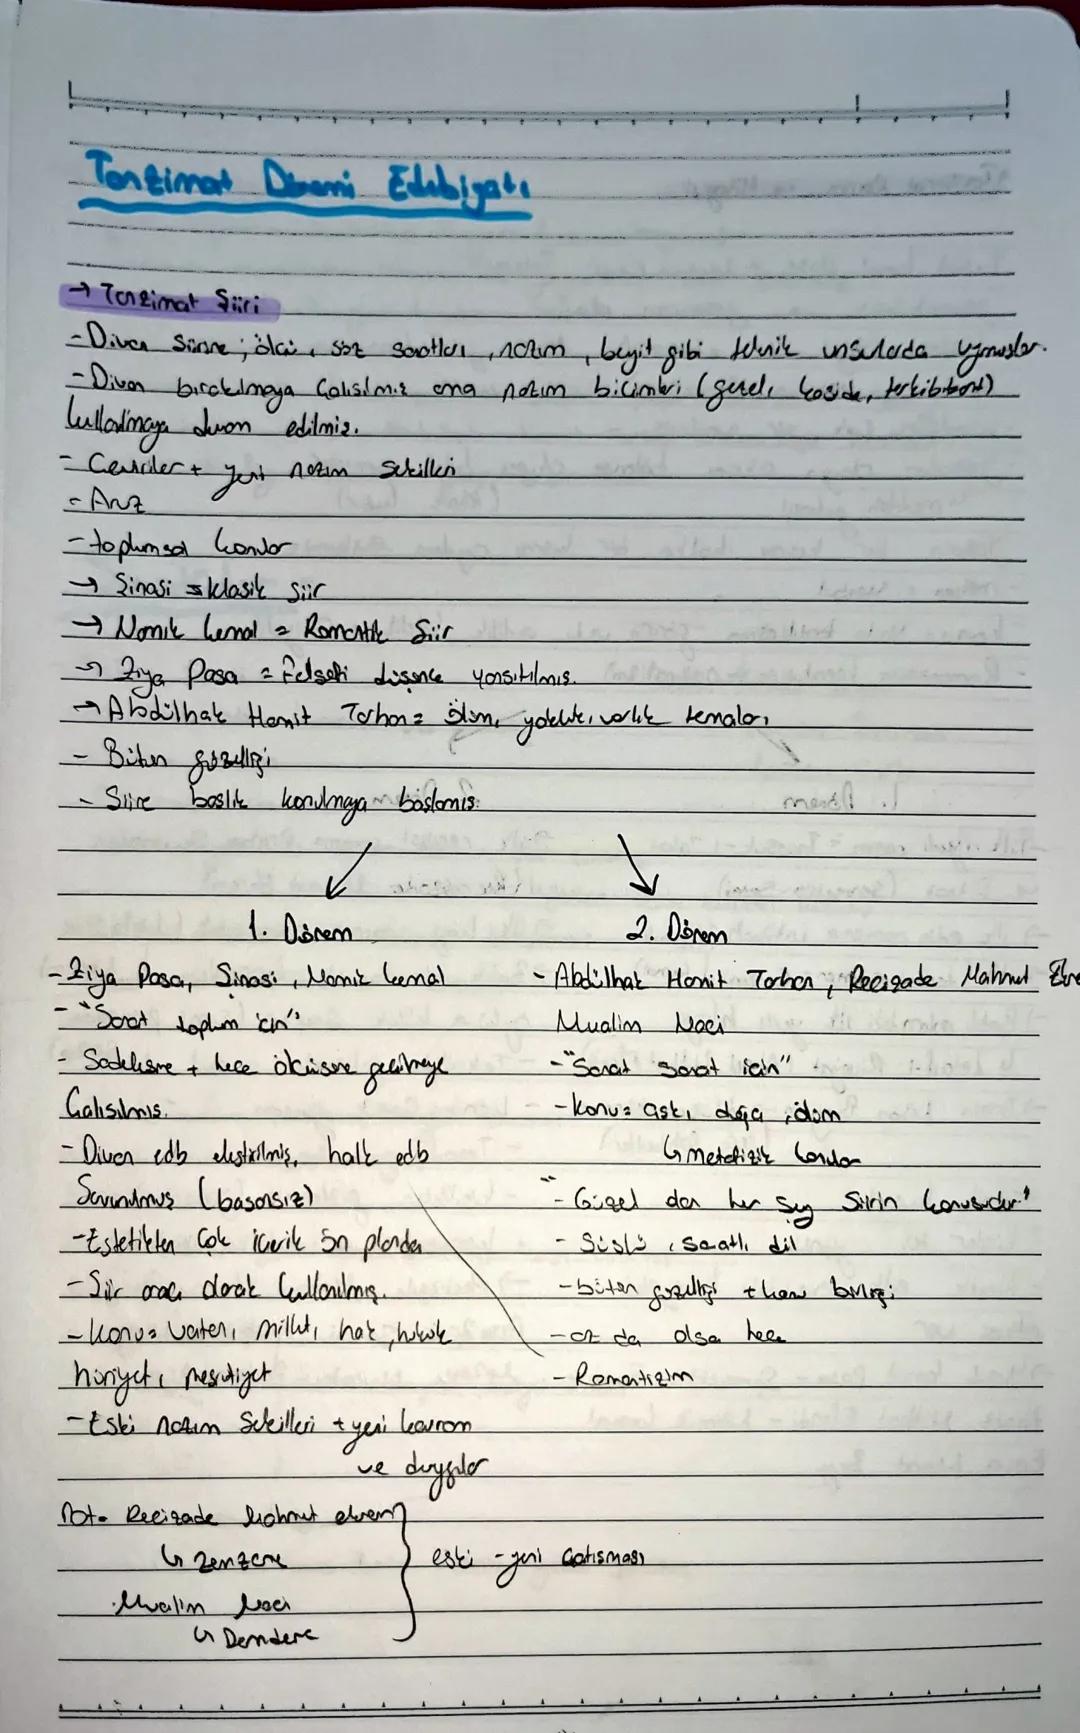 Tanzimat Dönemi Edebiyatı
→ Tanzimat Şiiri
- Divan Şiirine; ölçü, söz sanatları, nazım, beyit gibi teknik unsurlarda uymuşlar.
- Divan bırakılmaya Çalışılmış ama nazım biçimleri (gazel, kaside, terkibibent)
kullanılmaya devam edilmiş.
- Çeviriler + yeni nazım Şekilleri
- Aruz
- toplumsal konular
→ Şinasi = klasik şiir
→ Namık kemal = Romantik Şiir
→ Ziya Paşa = Felsefi düşünce yansıtılmış.
→ Abdülhak Hamit Tarhan = ölüm, yokluk, varlık temaları
- Bütün güzelliği
- Şiire başlık konulmaya başlamış.
1. Dönem
2. Dönem
- Ziya Paşa, Şinasi, Namık kemal
- Abdülhak Hamit Tarhan, Recizade Mahmut Ekre
Mualim Naci
- "Sanat toplum için"
- "Sanat sanat için"
- Sadeleşme + hece ölçüsüne geçilmeye
Çalışılmış.
- konu= aşk, doğa, ölüm
↳ metafizik konular
- Divan edb eleştirilmiş, halk edb
Savunulmuş (başarısız)
"- Güzel olan her şey Şiirin konusudur"
- Estetikten Çok içerik ön planda
- Süslü, sanatlı dil
- Şiir aracı olarak kullanılmış.
- bütün güzelliği + konu birliği
- konu= vatan, millet, hak, hukuk
hüriyet, meşrutiyet
- az da olsa hece
- Romantizim
- Eski nazım Şekilleri + yeni kavram
ve duygular
Not= Recizade Mahmut ekrem
↳ Zemzeme
Mualim Naci
↳ Demdeme
eski - yeni Çatışması